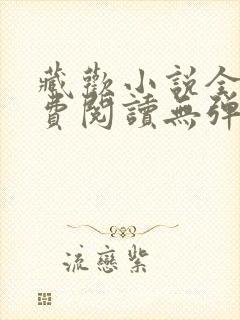 藏歡小說全
費閱讀無彈
流戀紫